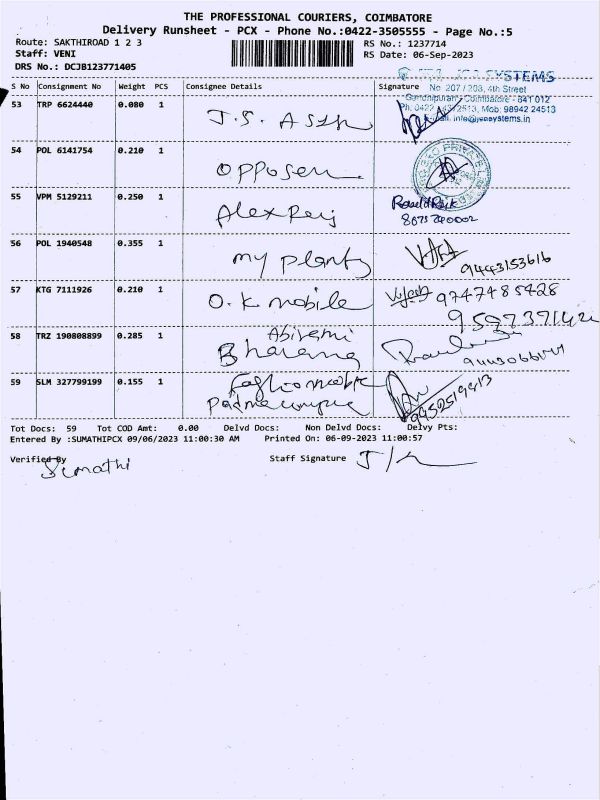 THE PROFESSIONAL COURIERS, COIMBATORE
Delivery Runsheet - PCX - Phone No.:0422-3505555 - Page No.:5
Route: SAKTHIROAD 1 2 3
Staff: VENI
DRS No.: DCJB123771405
RS No.: 1237714
RS Date: 06-Sep-2023
S No Consignment No Weight PCS Consignee Details Signature
SYSTEMS
No 207 / 203, 4th Street
Gandhipuram, Coimbatore - 641 012
Ph: 0422 Mob: 98942 24513
53 TRP 6624440 0.080 1 J.S.
54 POL 6141754 0.210 1 opposen
55 VPM 5129211 0.250 1 Alex
8075740002
56 POL 1940548 0.355 1 my plants 9443153616
57 KTG 7111926 0.210 1 O.K mobile 9747485428
58 TRZ 190808899 0.285 1 Abirami
59 SLM 327799199 0.155 1
9952519413
Tot Docs: 59 Tot COD Amt: 0.00 Delvd Docs: Non Delvd Docs: Delvy Pts:
Entered By :SUMATHIPCX 09/06/2023 11:00:30 AM Printed On: 06-09-2023 11:00:57
Verified By Staff Signature
Sumathi